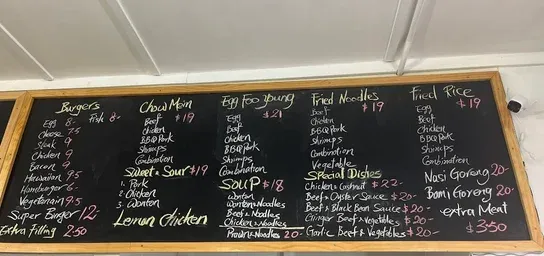 Burgers
Egg 8-
Fish 8-
Cheese 7.5
Steak 9
Chicken 9
Bacon 9
Hawaiian 9.5
Hamburger 6-
Vegetarian 9.5
Super Burger 12-
Extra Filling 2.50
Chow Mein
Beef $19
Chicken
BBQ Pork
Shrimps
Combination
Sweet & Sour $19
1. Pork
2. Chicken
3. Wonton
Lemon Chicken
Egg Foo Young
Egg $21
Beef
Chicken
BBQ Pork
Shrimps
Combination
SOUP $18
Wonton
Wonton & Noodles
Beef & Noodles
Chicken & Noodles
Prawn & Noodles 20-
Fried Noodles
Beef $19
Chicken
BBQ Pork
Shrimps
Combination
Vegetable
Special Dishes
Chicken & Cashnut $22-
Beef & Oyster Sauce $20-
Beef & Black Bean Sauce $20-
Ginger Beef & Vegetables $20-
Garlic Beef & Vegetables $20-
Fried Rice
Egg $19
Beef
Chicken
BBQ Pork
Shrimps
Combination
Nasi Goreng 20-
Bami Goreng 20-
extra Meat
$3.50